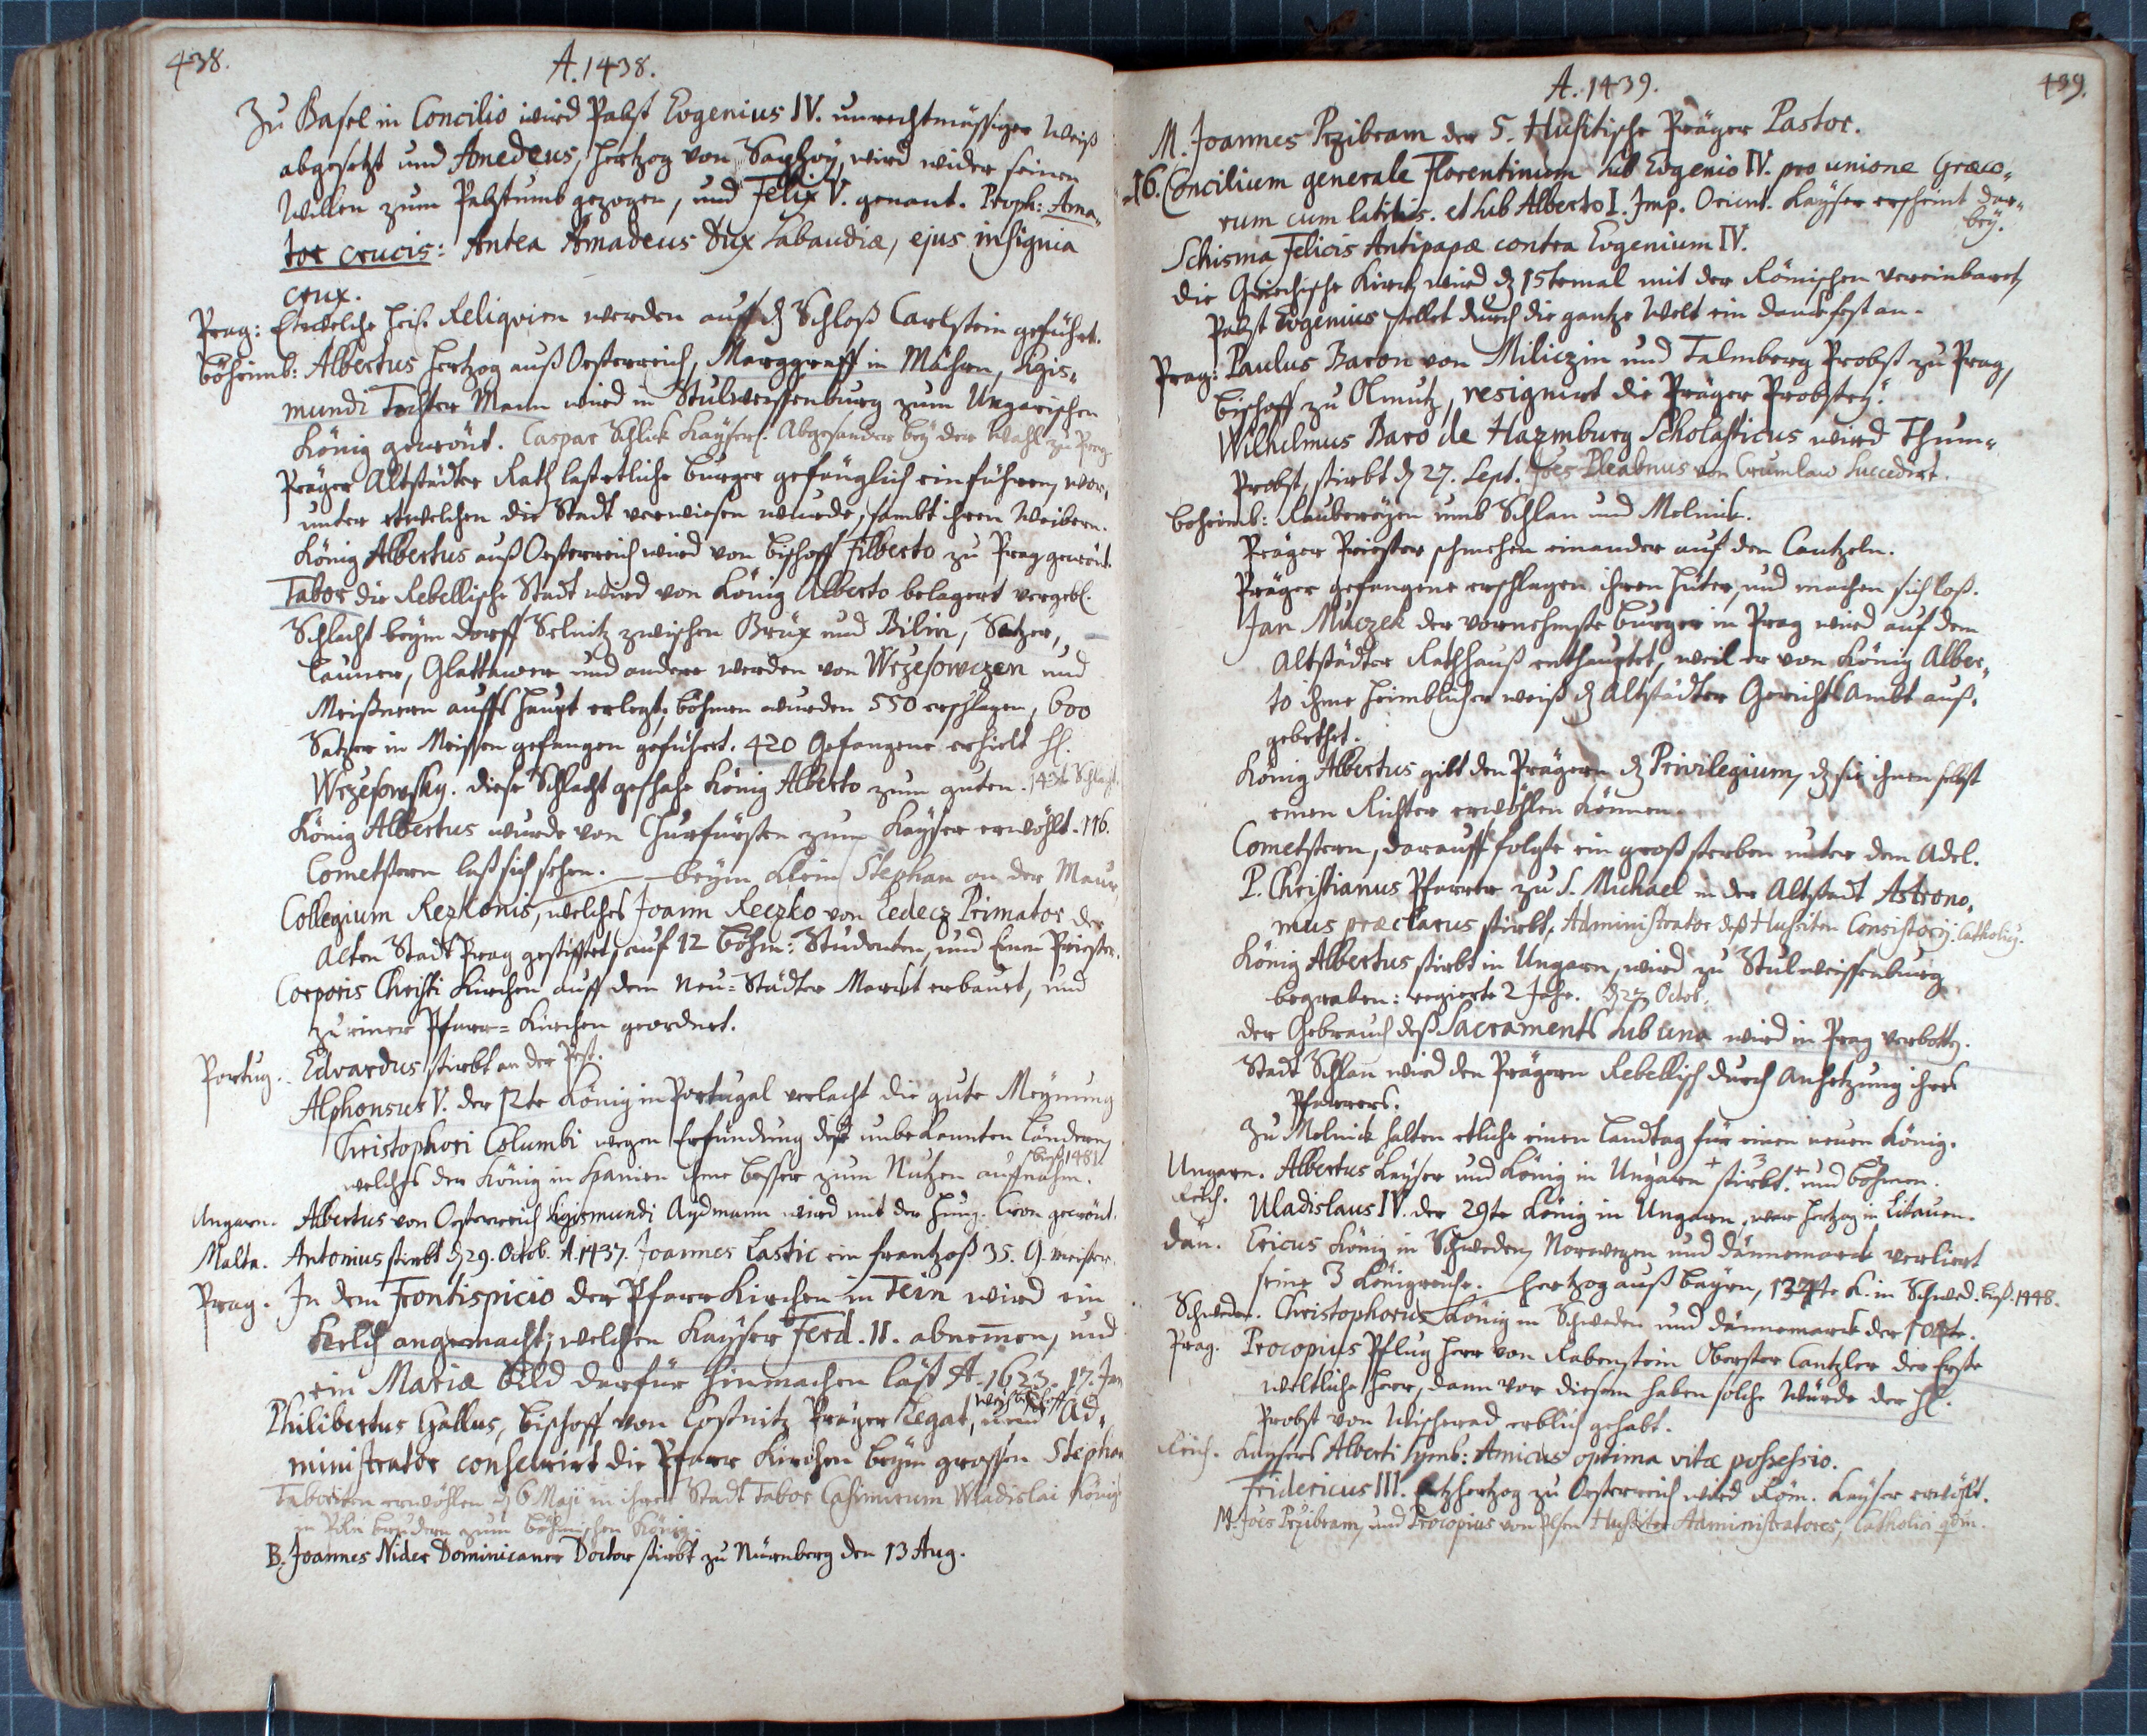 438.
A. 1438.
Zu Basel in Concilio wird Pabst Eugenius IV. unrechtmässiger Weiß
abgesetzt und Amedeus, Hertzog von Saphoÿ, wird wider seinen
Willen zum Pabstumb gezogen, und Felix V. genant. Proph: Ama-
tor crucis: Antea Amadeus Dux Sabaudiæ, ejus insignia
crux.
Prag: Etwelche heil. Reliqvien werden auff dz Schloß Carlstein geführt.
Böheimb: Albertus Hertzog auß Oesterreich, Marggraff in Mähren, Sigis-
mundi Tochter Mann wird in Stulweissenburg zum Ungarischen
König gecrönt. Caspar Schlik Kaÿserl. Abgesander beÿ der Wahl zu Prag.
Präger Altstädter Rath last etliche Burger gefänglich einführen, wor-
unter etwelchen die Stadt verwiesen wurde, sambt ihren Weibern.
König Albertus auß Oesterreich wird von Bischoff Filberto zu Prag gecrönt.
Tabor die Rebellische Stadt wird von König Alberto belagert vergebl.
Schlacht beÿm Dorff Selnitz zwischen Brüx und Bilin, Satzer,
Launer, Glattawer und andere werden von Wrzesowczen und
Meißnern auffs Haupt erlegt, Böhmen wurden 550 erschlagen, 600
Satzer in Meissen gefangen geführt. 420 Gefangene erhielt H.
Wrzesowsky. Diese Schlacht geschahe König Alberto zum guten. 143te Schlacht.
König Albertus wurde von Churfürsten zum Kaÿser erwöhlt. 116.
Cometstern laß sich sehen. beÿm Klein Stephan an der Maur,
Collegium Rezkonis, welches Joann Reczko von Ledecz Primator der
Alten Stadt Prag gestifftet, auf 12 Böhm: Studenten, und Einen Priester.
Corporis Christi Kirchen auff dem Neu-Städter Marckt erbauet, und
zu einer Pfarr-Kirchen geordnet.
Portug. Edvardus stirbt an der Pest.
Alphonsus V. der 12te König in Portugal verlacht die gute Meÿnung
Christophori Columbi wegen Erfündung deß unbekannten Ländern,
welches der König in Spanien ihme besser zum Nutzen auffnahm. biß 1481.
Ungarn. Albertus von Oesterreich Sigismundi Aydmann wird mit der Hung. Cron gecrönt.
Malta. Antonius stirbt dz 29. Octob. A. 1437. Joannes Lastic ein Frantzoß 35. G. meister.
Prag. In dem Frontispicio der Pfarr Kirchen in Tein wird ein
Kelch angemacht, welchen Kaÿser Ferd. II. abnemen, und
ein Mariæ Bild darfür hinmachen läst A. 1623. 17. Jan
Philibertus Gallus, Bischoff von Costnitz Präger Legat, Weÿbischoff und Ad-
ministrator consecrirt die Pfarr Kirchen beÿm grossen Stephan
Taboriten erwöhlen dz 6 Maji in ihrer Stadt Tabor Casimirum Wladislai König
in Polen brudern zum böhmischen König.
B. Joannes Nider Dominicaner Doctor stirbt zu Nürnberg den 13 Aug.
A. 1439.
439.
M. Joannes Przibram der 5. Husitische Präger Pastor.
16. Concilium generale Florentinum sub Eugenio IV. pro unione Græco-
rum cum latinis. et sub Alberto I. Imp. Orient. Kaÿser erscheint dar-
beÿ.
Schisma Felicis Antipapæ contra Eugenium IV.
Die Griechische Kirch wird dz 15te mal mit der Römischen vereinbaret,
Pabst Eugenius stellet durch die gantze Welt ein Danckfest an.
Prag: Paulus Baron von Miliczin und Talmberg Probst zu Prag,
Bischoff zu Olmutz, resignirt die Präger Probsteÿ.
Wilhelmus Baro de Hazmburg Scholasticus wird Thum-
Probst, stirbt dz 27. Sept. Joes Pleabnus von Crumlaw succedirt.
Böheimb: Raubereÿen umb Schlan und Melnick.
Präger Priester schmehen einander auf den Cantzeln.
Präger gefangene erschlagen ihren Hüter, und machen sich loß.
Jan Muczek der vornehmste Burger in Prag wird auf dem
Altstädter Rathhauß enthauptet, weil er von König Alber-
to ihme heimblicher weiß dz Altstädter Gerichts Ambt auß-
gebethet.
König Albertus gibt den Prägern dz Privilegium, dz sie ihnen selbst
einen Richter erwöhlen können.
Cometstern, darauff folgte ein groß sterben unter dem Adel.
P. Christianus Pfarrer zu S. Michael in der Altstadt Astrono-
mus præclarus stirbt, Administrator deß Hussiten Consistorij. Catholisch.
König Albertus stirbt in Ungarn, wird zu Stulweissenburg
begraben: regierte 2 Jahr. dz 27 Octob.
Der Gebrauch deß Sacraments sub una wird in Prag verbotten.
Stadt Schlan wird den Prägern Rebellisch durch Anhetzung ihres
Pfarrers.
Zu Melnick halten etliche einen Landtag für einen neuen König.
Ungarn. Albertus Kaÿser und König in Ungarn stirbt. und Böhmen.
Reich. Uladislaus IV. der 29te König in Ungarn, war Hertzog in Litauen.
Dän. Ericus König in Schweden, Norwegen und Dännemarck verliert
seine 3 Königreiche. Hertzog auß Baÿrn, 134te K. in Schwed. biß 1448.
Schweden. Christophorus König in Schweden und Dännemarck der 104te.
Prag. Procopius Pflug Herr von Rabenstein Oberster Cantzler der Erste
weltliche Herr, dann vor diesem haben solche Würde der H.
Probst von Wischerad erblich gehabt.
Reich. Kaysers Alberti symb: Amicus optima vitæ possessio.
Fridericus III. Ertzhertzog zu Oesterreich wird Röm. Kaÿser erwöhlt.
M. Joes Przibram, und Procopius von Plsen Hussiten Administratores, Catholici